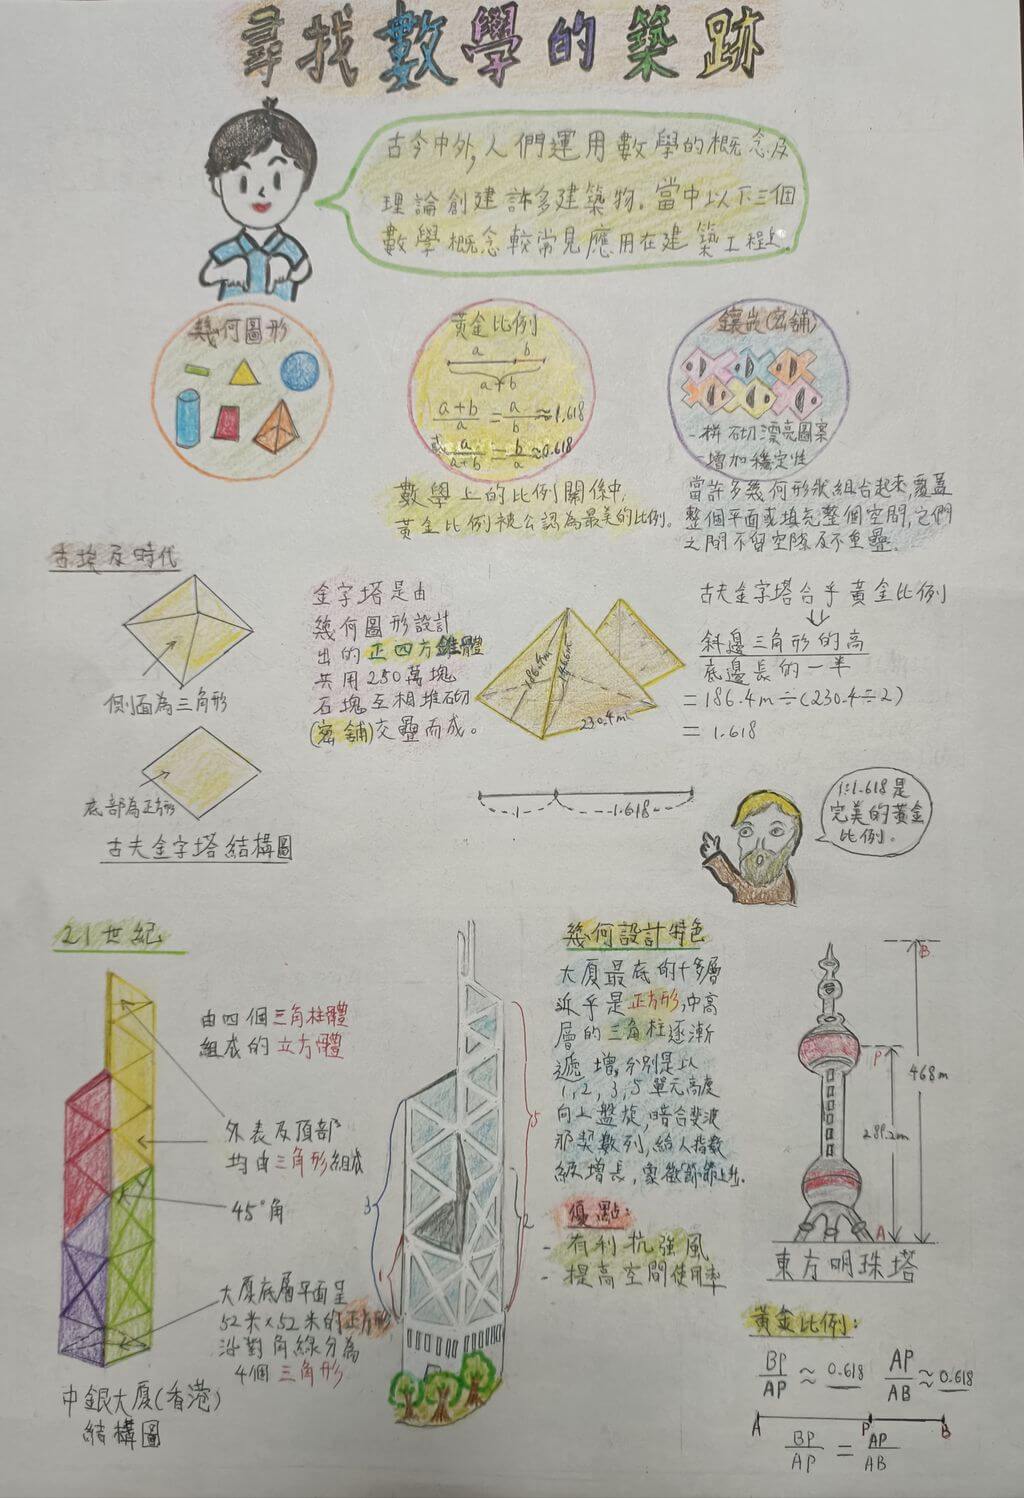 尋找數學的築跡
古今中外,人們運用數學的概念及
理論創建許多建築物。當中以下三個
數學概念較常見應用在建築工程上。
幾何圖形
黃金比例
a b
a+b
a+b/a = a/b ≈1.618
或 a/a+b = b/a ≈0.618
鑲嵌(密舖)
-拼砌漂亮圖案
-增加穩定性
數學上的比例關係中,
黃金比例被公認為最美的比例。
當許多幾何形狀組合起來,覆蓋
整個平面或填充整個空間,它們
之間不留空隙及不重疊。
古埃及時代
側面為三角形
底部為正方形
古夫金字塔結構圖
金字塔是由
幾何圖形設計
出的正四方錐體
共用250萬塊
石塊互相堆砌
(密舖)交疊而成。
186.4m
146.6m
230.4m
古夫金字塔合乎黃金比例
斜邊三角形的高
底邊長的一半
=186.4m÷(230.4÷2)
= 1.618
1
1.618
1:1.618是
完美的黃金
比例。
21世紀
由四個三角柱體
組成的立方體
外表及頂部
均由三角形組成
45°角
大廈底層平面呈
52米×52米的正方形
沿對角線分為
4個三角形
中銀大廈(香港)
結構圖
3
1
5
2
幾何設計特色
大廈最底的十多層
近乎是正方形,中高
層的三角柱逐漸
遞增,分別是以
1,2,3,5單元高度
向上盤旋,暗合斐波
那契數列,給人指數
級增長,象徵節節上升.
優點:
-有利抗強風
-提高空間使用率
B
P
468m
289.2m
A
東方明珠塔
黃金比例:
BP/AP ≈ 0.618 AP/AB ≈ 0.618
A P B
BP/AP = AP/AB